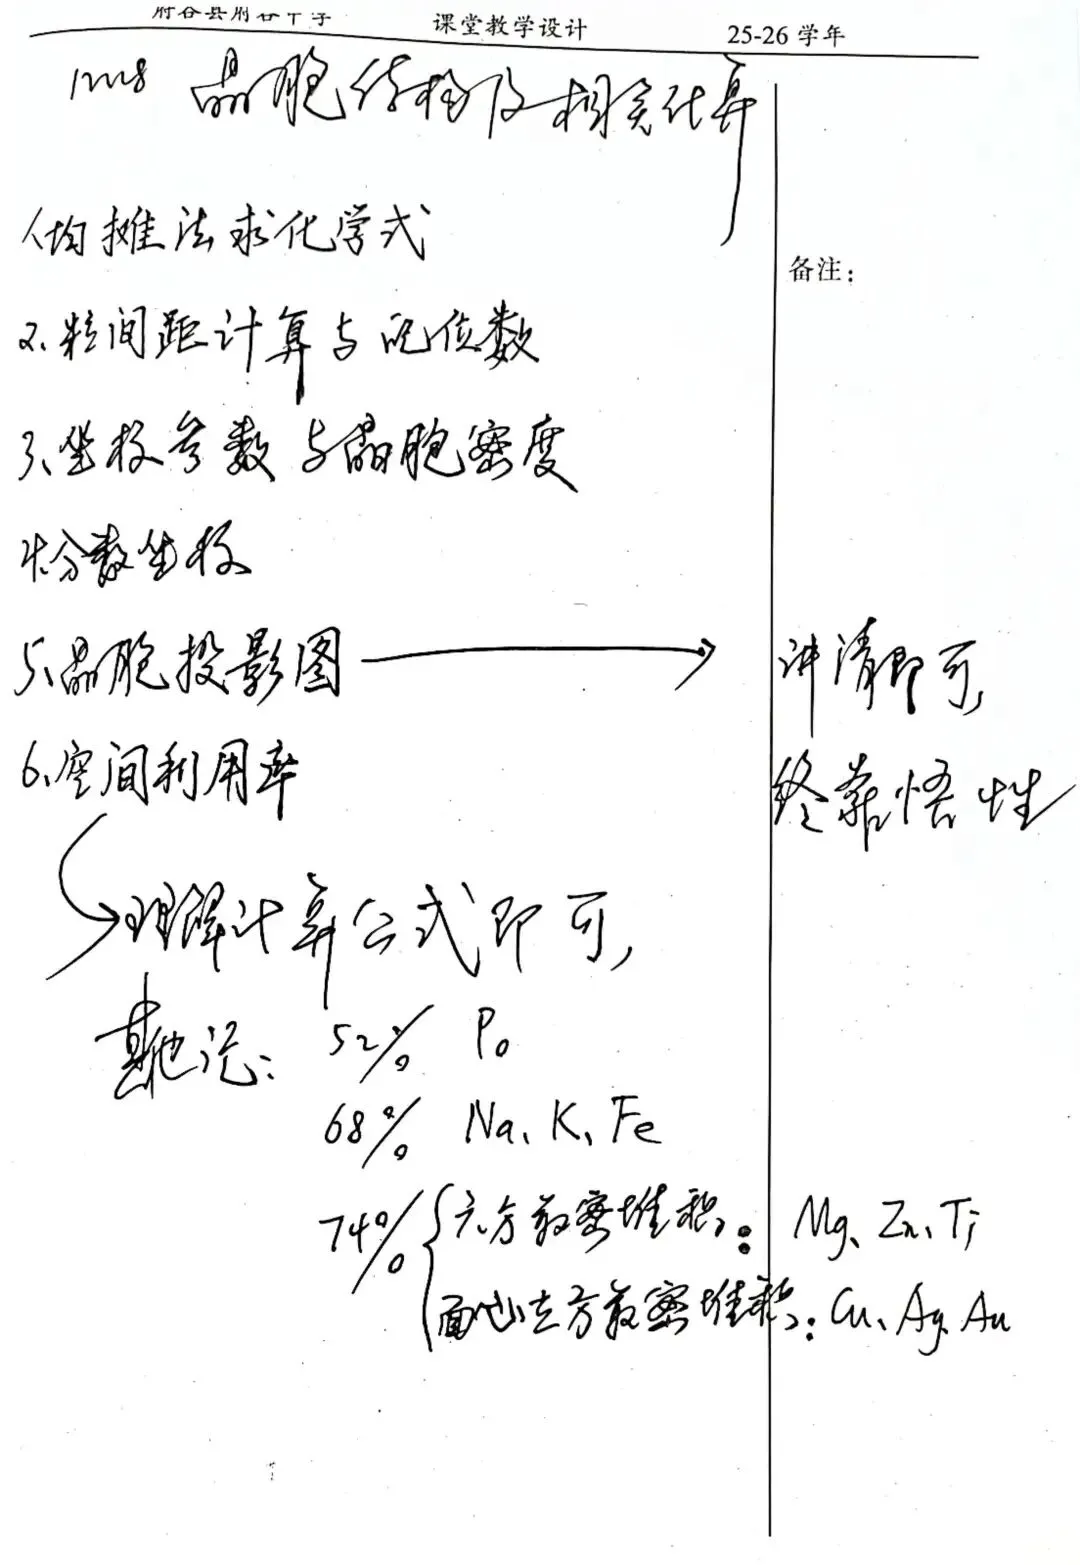 府谷县府谷中学 课堂教学设计 25-26 学年
晶胞结构及相关计算
1、均摊法求化学式
备注：
2、粒间距计算与配位数
3、坐标参数与晶胞密度
4、分数坐标
5、晶胞投影图 → 讲清即可，
终靠悟性
6、空间利用率
理解计算公式即可，
其他记：52% Po
68% Na、K、Fe
74% 六方最密堆积：Mg、Zn、Ti
面心立方最密堆积：Cu、Ag、Au